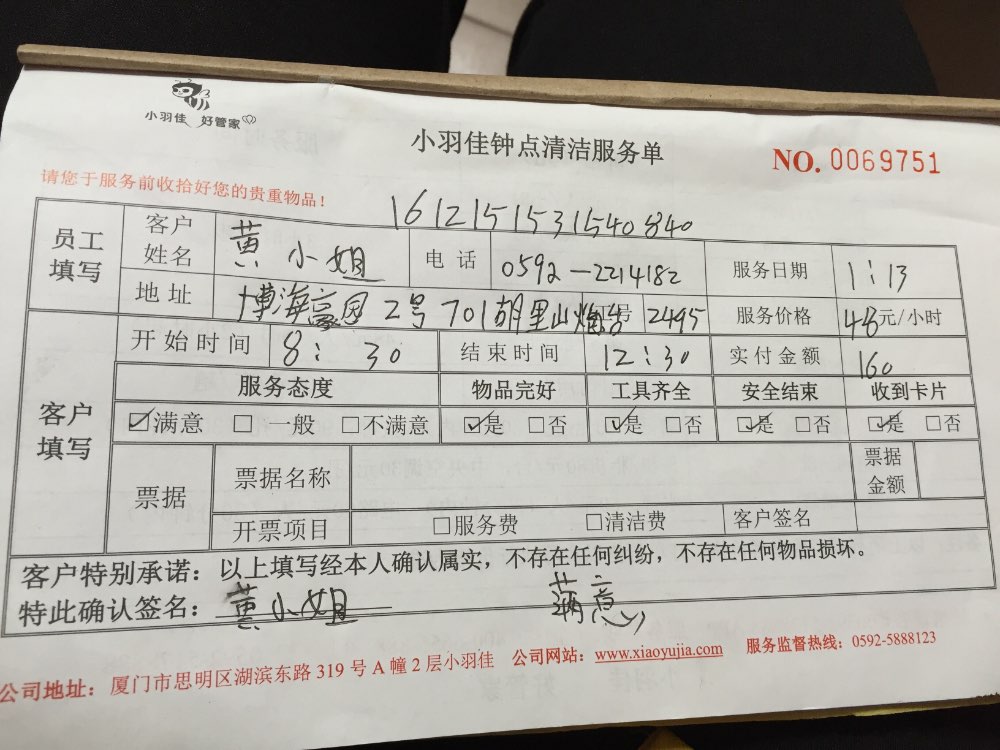 小羽佳 好管家
小羽佳钟点清洁服务单
NO. 0069751
请您于服务前收拾好您的贵重物品！
1612151531540840
员工填写 客户姓名 黄小姐 电话 0592-2214182 服务日期 1:13
地址 博海豪园2号701胡里山炮台 号 2495 服务价格 48元/小时
客户填写 开始时间 8:30 结束时间 12:30 实付金额 160
服务态度 物品完好 工具齐全 安全结束 收到卡片
☑满意 □一般 □不满意 ☑是 □否 ☑是 □否 ☑是 □否 ☑是 □否
票据 票据名称 票据金额
开票项目 □服务费 □清洁费 客户签名
客户特别承诺：以上填写经本人确认属实，不存在任何纠纷，不存在任何物品损坏。
特此确认签名：黄小姐 满意
公司地址：厦门市思明区湖滨东路319号A幢2层小羽佳 公司网站：www.xiaoyujia.com 服务监督热线：0592-5888123